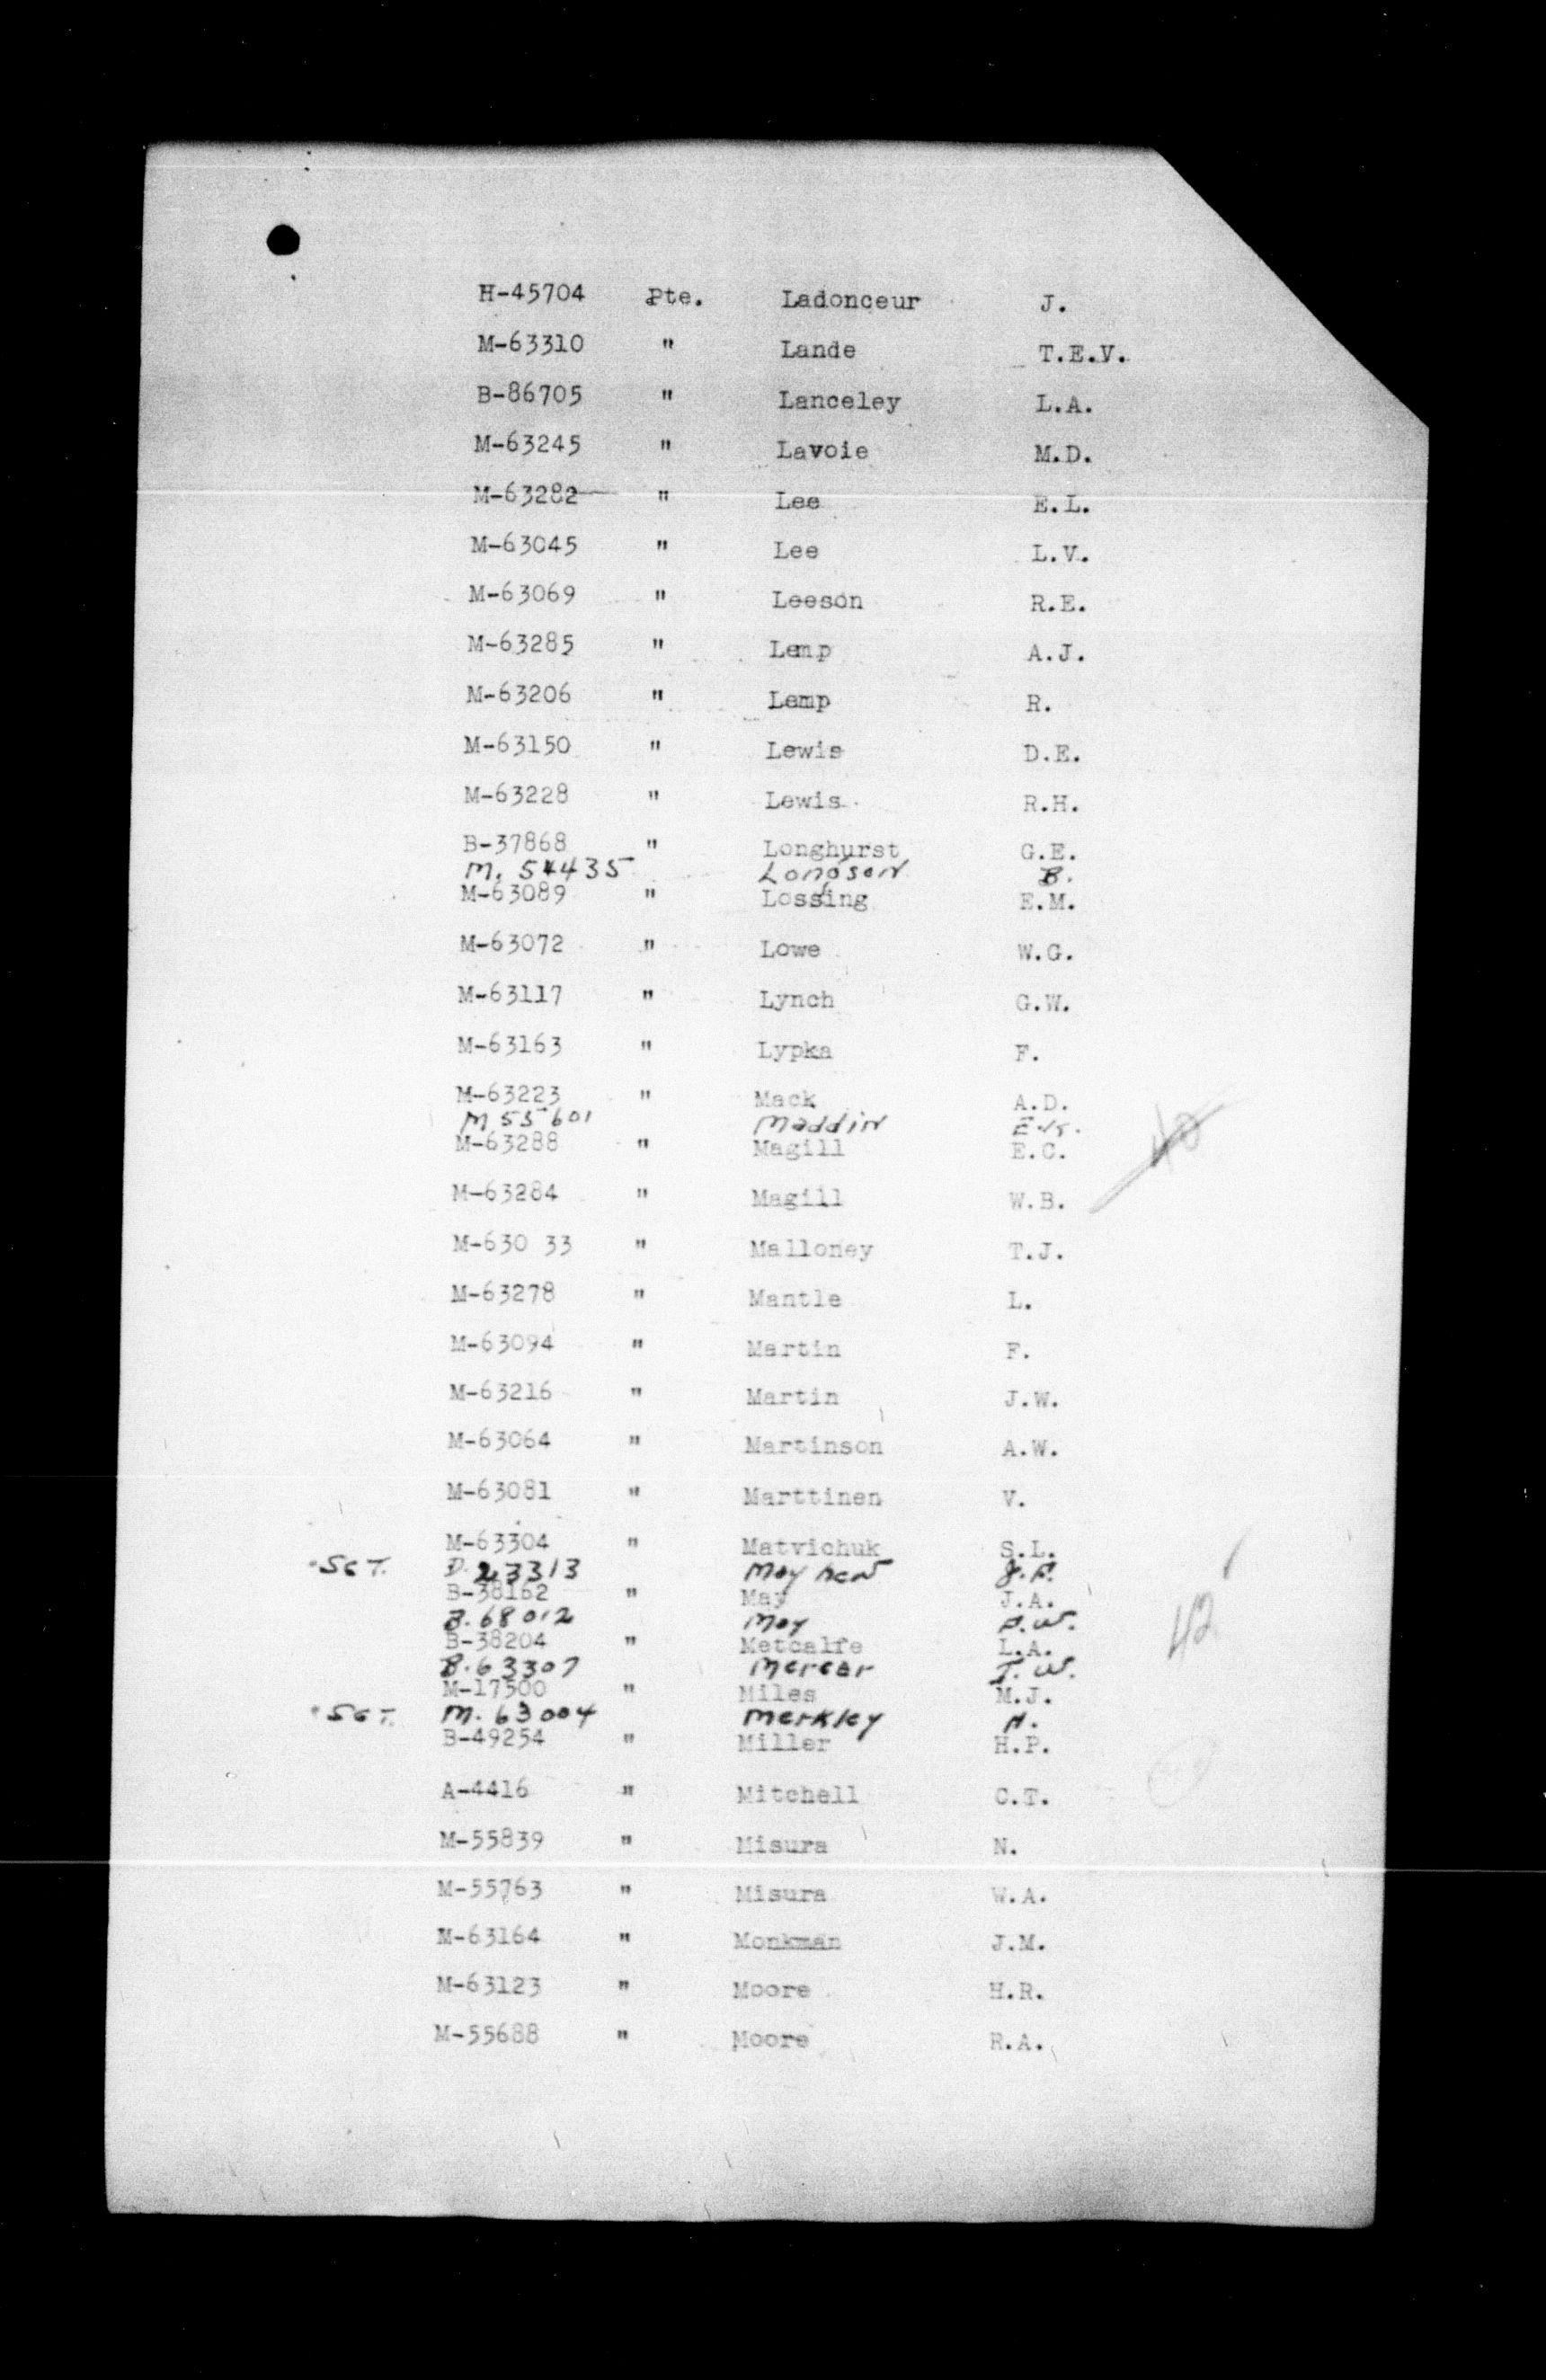 H-45704 Pte. Ladonceur J.
M-63310 " Lande T.E.V.
B-86705 " Lanceley L.A.
M-63245 " Lavoie M.D.
M-63282 " Lee E.L.
M-63045 " Lee L.V.
M-63069 " Leeson R.E.
M-63285 " Lemp A.J.
M-63206 " Lemp R.
M-63150 " Lewis D.E.
M-63228 " Lewis R.H.
B-37868 " Longhurst G.E.
M. 54435 Longson B.
M-63089 " Lossing E.M.
M-63072 " Lowe W.G.
M-63117 " Lynch G.W.
M-63163 " Lypka F.
M-63223 " Mack A.D.
M 55601 Maddin
M-63288 " Magill E.C.
40
M-63284 " Magill W.B.
M-630 33 " Malloney T.J.
M-63278 " Mantle L.
M-63094 " Martin F.
M-63216 " Martin J.W.
M-63064 " Martinson A.W.
M-63081 " Marttinen V.
M-63304 " Matvichuk S.L.
SGT. D. 23313 Mayhew
B-38162 " May J.A.
B. 68012 May
42
B-38204 " Metcalfe L.A.
B. 63307 Mercer
M-17500 " Miles M.J.
SGT. M. 63004 Merkley H.
B-49254 " Miller H.P.
A-4416 " Mitchell C.T.
M-55839 " Misura N.
M-55763 " Misura W.A.
M-63164 " Monkman J.M.
M-63123 " Moore H.R.
M-55688 " Moore R.A.